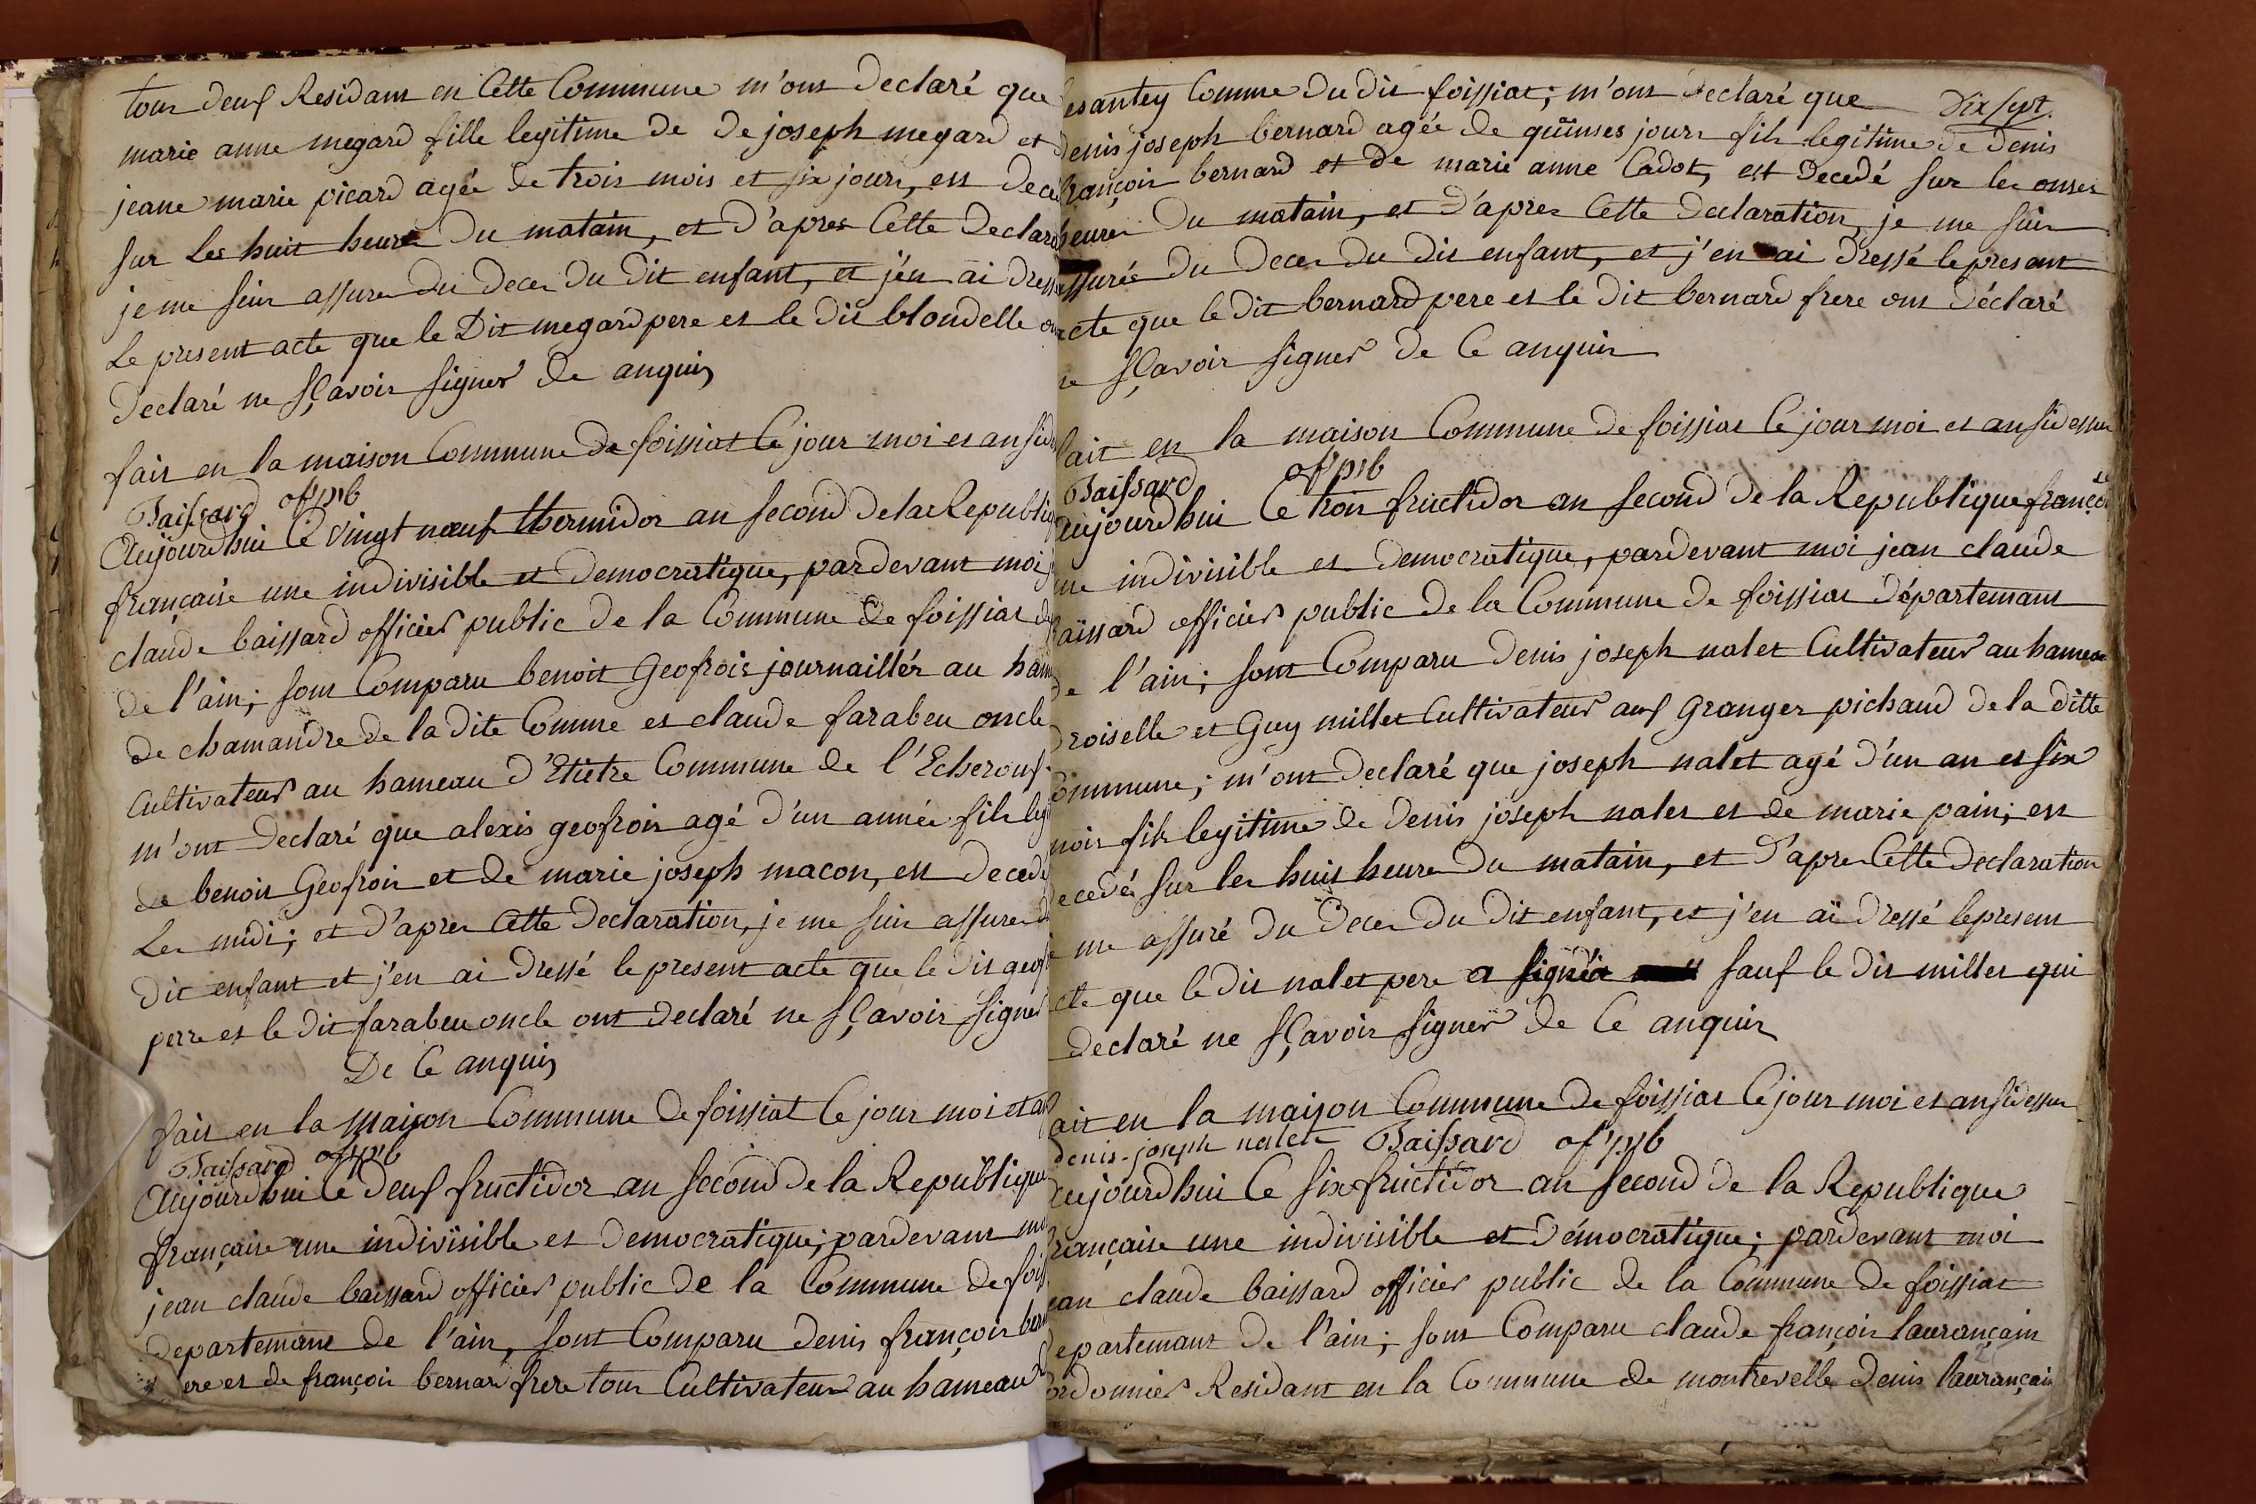 tous deuf Residant en Cette Commune m'ont Declaré que
marie anne megard fille legitime de de joseph megard et
jeane marie picard agée de trois mois et six jours, est dece
sur les huit heure du matain, et d'apres Cette Declara
je me suis assurer du deces du dit enfant, et j'en ai dress
Le present acte que le Dit megard pere et le dit blondelle on
declaré ne sçavoir signer de anquis
fait en la maison Commune de foissiat Ce jour moi et an side
Baissard of pub
Aujourdhui Ce vingt noeuf thermidor an second de la Republiq
française une indivisible et democratique, pardevant moi j
claude baissard officier public de la Commune de foissiat de
de l'ain; sont Comparu benoit Geofrois journaillér au ham
de chamandre de la dite Comme et claude farabeu oncle
Cultivateur au hameau d'Etietre Commune de l'Echerouf
m'ont Declaré que alexis geofrois agé d'un année fils leg
de benois Geofrois et de marie joseph macon, est decedé
Les midi; et d'apres Cette declaration, je me suis assurer d
dit enfant et j'en ai dressé le present acte que le dit geof
perre et le dit farabeu oncle ont declaré ne sçavoir signer
De Ce anquis
fait en la maison Commune de foissiat Ce jour moi et an
Baissard of pub
Aujourdhui Ce deuf fructidor an second de la Republique
française une indivisible et democratique; pardevant mo
jean claude baissard officier public de la Commune de foiss
departemant de l'ain, sont Comparu denis françois bern
ere et de françois bernard frere tous Cultivateur au hameau
Dix sept.
esantey Comme du dit foissiat; m'ont declaré que
denis joseph bernard agée de quinses jours fils legitime de denis
françois bernard et de marie anne Cadot, est decedé sur les onses
heures du matain, et d'apres Cette declaration, je me suis
assurée du deces du dit enfant, et j'en ai dressé le present
acte que le dit bernard pere et le dit bernard frere ont déclaré
ne sçavoir signer de Ce anquis
fait en la maison Commune de foissiat Ce jour moi et an sidessus
Baissard of pub
Aujourdhui Ce trois fructidor an second de la Republique françoi
une indivisible et democratique, pardevant moi jean claude
baissard officier public de la Commune de foissiat départemant
de l'ain; sont Comparu denis joseph nalet Cultivateur au hameau
droiselle et Guy millet Cultivateur auf Granger pichaud de la ditte
Commune; m'ont declaré que joseph nalet agé d'un an et six
mois fils legitime de denis joseph nalet et de marie pain; est
decedér sur les huit heure du matain, et d'apres Cette declaration
je me assuré du deces du dit enfant, et j'en ai dressé le present
acte que le dit nalet pere a signér sauf le dit millet qui
declaré ne sçavoir signer de Ce anquis
fait en la maison Commune de foissiat Ce jour moi et an sidessus
denis-joseph nalet Baissard of pub
Aujourdhui Ce six fructidor an second de la Republique
française une indivisible et démocratique; pardevant moi
jean claude baissard officier public de la Commune de foissiat
departemant de l'ain; sont Comparu claude françois laurançain
Cordonnier Residant en la Commune de montrevelle denis laurançain